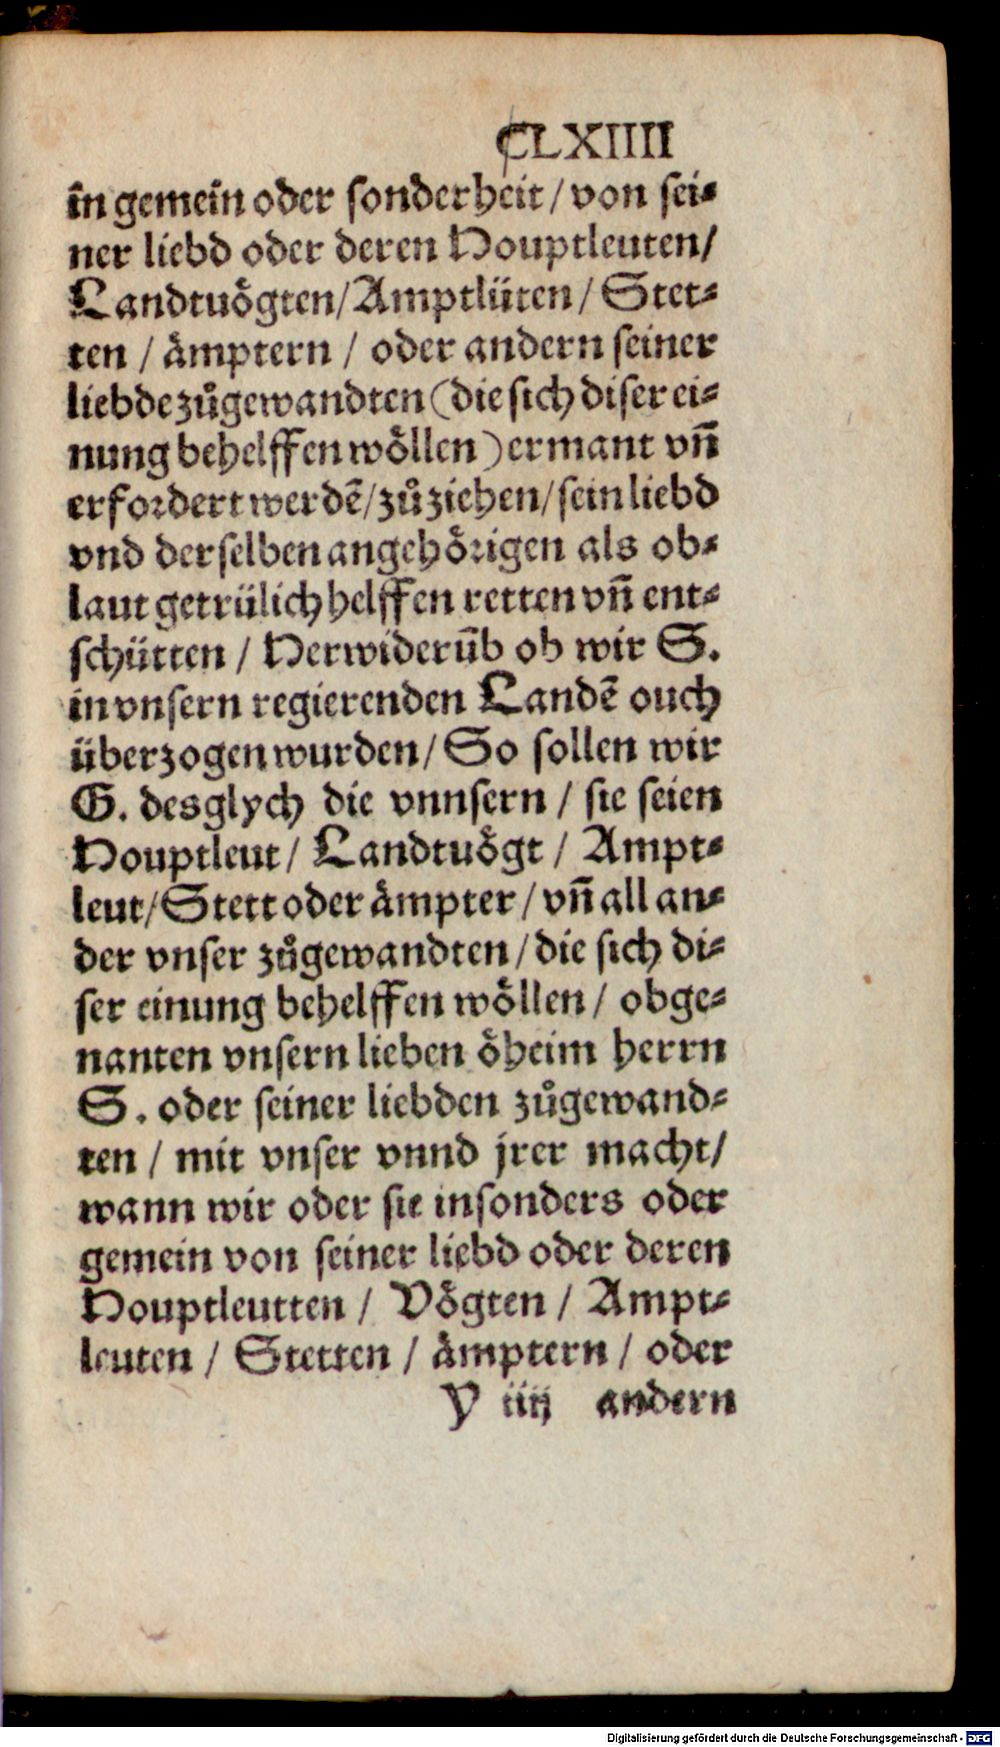 CLXIIII
in gemein oder sonderheit / von sei⸗
ner liebd oder deren Houptleuten/
Landtuögten/Amptlüten / Stet⸗
ten / ämptern / oder andern seiner
liebde zůgewandten (die sich diser ei⸗
nung behelffen wöllen) ermant vñ
erfordert werdē/zů ziehen/sein liebd
vnd derselben angehörigen als ob⸗
laut getrülich helffen retten vñ ent⸗
schütten / Herwiderūb ob wir S.
in vnsern regierenden Landē ouch
überzogen wurden/ So sollen wir
G. desglych die vnnsern / sie seien
Houptleut/ Landtuögt / Ampt⸗
leut/Stett oder ämpter / vñ all an⸗
der vnser zůgewandten / die sich di⸗
ser einung behelffen wöllen / obge⸗
nanten vnsern lieben öheim herrn
S. oder seiner liebden zůgewand⸗
ten / mit vnser vnnd jrer macht/
wann wir oder sie insonders oder
gemein von seiner liebd oder deren
Houptleutten / Vögten / Ampt⸗
leuten / Stetten / ämptern / oder
Y iiij andern
Digitalisierung gefördert durch die Deutsche Forschungsgemeinschaft - DFG